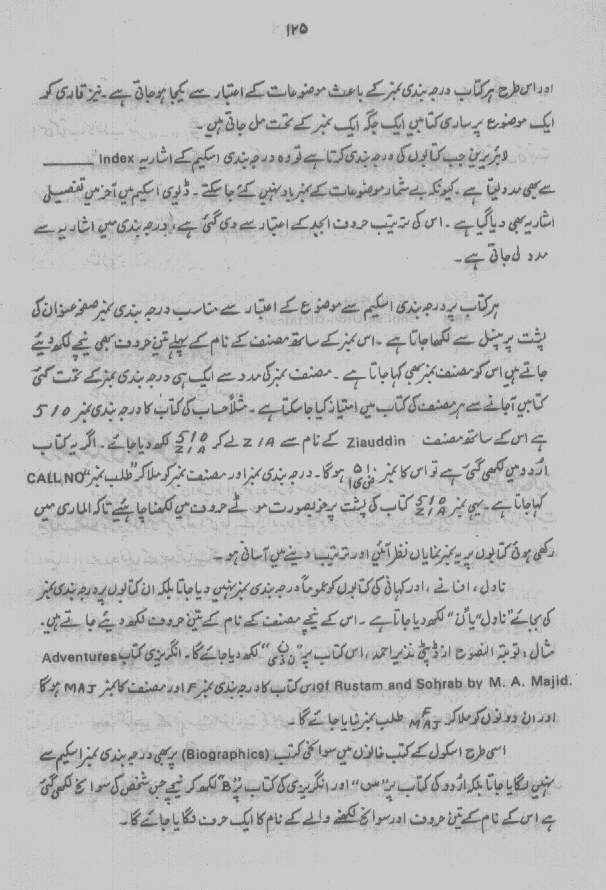 ۱۲۵
اور اس طرح ہر کتاب درجہ بندی نمبر کے باعث موضوعات کے اعتبار سے یکجا ہو جاتی ہے۔ نیز قاری کو
ایک موضوع پر ساری کتابیں ایک جگہ ایک نمبر کے تحت مل جاتی ہیں۔
لائبریرین جب کتابوں کی درجہ بندی کرتا ہے تو وہ درجہ بندی اسکیم کے اشاریہ Index
سے بھی مدد لیتا ہے۔ کیونکہ بے شمار موضوعات کے نمبر یاد نہیں کئے جا سکتے۔ ڈیوی اسکیم میں آخر میں تفصیلی
اشاریہ بھی دیا گیا ہے۔ اس کی ترتیب حروف ابجد کے اعتبار سے دی گئی ہے، درجہ بندی میں اشاریہ سے
مدد لی جاتی ہے۔
ہر کتاب پر درجہ بندی اسکیم سے موضوع کے اعتبار سے مناسب درجہ بندی نمبر صفحہ عنوان کی
پشت پر پنسل سے لکھا جاتا ہے۔ اس نمبر کے ساتھ مصنف کے نام کے پہلے تین حروف بھی نیچے لکھ دیئے
جاتے ہیں اس کو مصنف نمبر بھی کہا جاتا ہے۔ مصنف نمبر کی مدد سے ایک ہی درجہ بندی نمبر کے تحت کئی
کتابیں آ جانے سے ہر مصنف کی کتاب میں امتیاز کیا جا سکتا ہے۔ مثلاً حساب کی کتاب کا درجہ بندی نمبر 510
ہے اس کے ساتھ مصنف Ziauddin کے نام سے ZIA لے کر 510 ZIA لکھ دیا جائے۔ اگر یہ کتاب
اردو میں لکھی گئی ہے تو اس کا نمبر ۵۱۰ ض ی ا ہو گا۔ درجہ بندی نمبر اور مصنف نمبر کو ملا کر "طلب نمبر" CALL NO
کہا جاتا ہے۔ یہی نمبر 510 ZIA کتاب کی پشت پر خوبصورت موٹے حروف میں لکھنا چاہئیے تاکہ الماری میں
رکھی ہوئی کتابوں پر یہ نمبر نمایاں نظر آئیں اور ترتیب دینے میں آسانی ہو۔
ناول، افسانے، اور کہانی کی کتابوں کو عموماً درجہ بندی نمبر نہیں دیا جاتا بلکہ ان کتابوں پر درجہ بندی نمبر
کی بجائے "ناول" یا "ن" لکھ دیا جاتا ہے۔ اس کے نیچے مصنف کے نام کے تین حروف لکھ دیئے جاتے ہیں۔
مثال، توبتہ النصوح از ڈپٹی نذیر احمد، اس کتاب پر "ن ن ذ ی" لکھ دیا جائے گا۔ انگریزی کتاب Adventures
of Rustam and Sohrab by M. A. Majid. اس کتاب کا درجہ بندی نمبر F اور مصنف کا نمبر MAJ ہو گا
اور ان دونوں کو ملا کر F MAJ طلب نمبر بنایا جائے گا۔
اسی طرح اسکول کے کتب خانوں میں سوانحی کتب (Biographics) پر بھی درجہ بندی نمبر اسکیم سے
نہیں لگایا جاتا بلکہ اردو کی کتاب پر "س" اور انگریزی کی کتاب پر "B" لکھ کر نیچے جس شخص کی سوانح لکھی گئی
ہے اس کے نام کے تین حروف اور سوانح لکھنے والے کے نام کا ایک حرف لگایا جائے گا۔